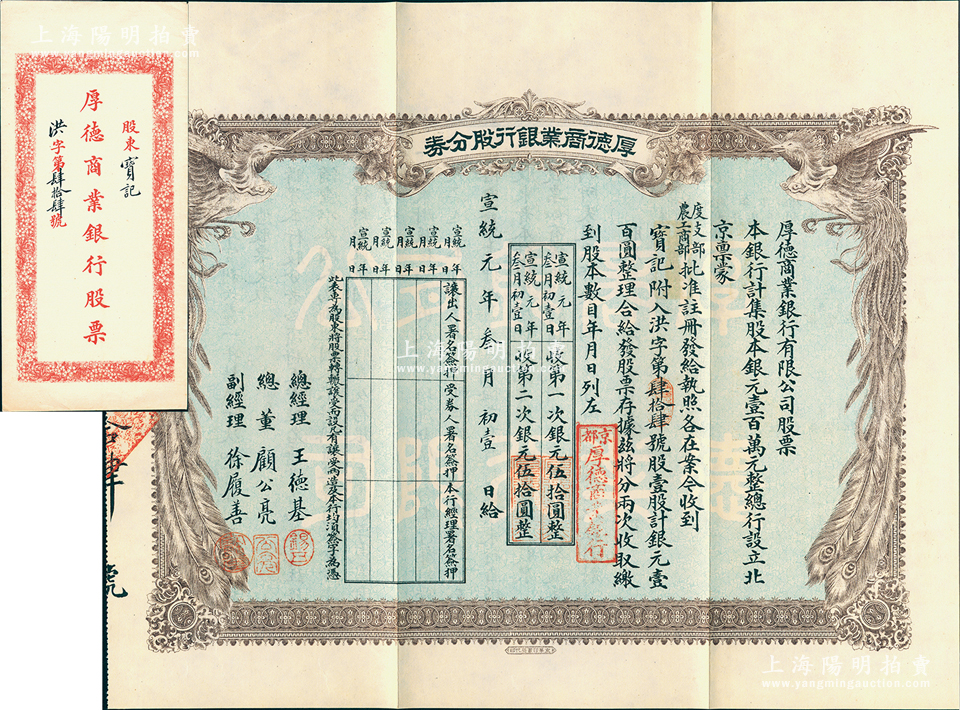 上海陽明拍賣
股東寶記
厚德商業銀行股票
洪字第肆拾肆號
厚德商業銀行股分券
厚德商業銀行有限公司股票
本銀行計集股本銀元壹百萬元整總行設立北
京稟蒙
度支部
農工商部
批准註冊發給執照各在案今收到
寶記附入洪字第肆拾肆號股壹股計銀元壹
百圓整理合給發股票存據茲將分兩次收取繳
到股本數目年月日列左
宣統元年叁月初壹日收第一次銀元伍拾圓整
宣統元年叁月初壹日收第二次銀元伍拾圓整
宣統元年叁月初壹日給
京都
厚德商業銀行
讓出人署名簽押
受券人署名簽押
本行經理署名簽押
宣統年月日
宣統年月日
宣統年月日
宣統年月日
宣統年月日
此表專為股東將股票轉輾讓受而設凡有讓受兩造及本行均須簽字為憑
總經理 王德基
總董 顧公亮
副經理 徐履善
號
上海陽明拍賣
www.yangmingauction.com
上海陽明拍賣
www.yangmingauction.com